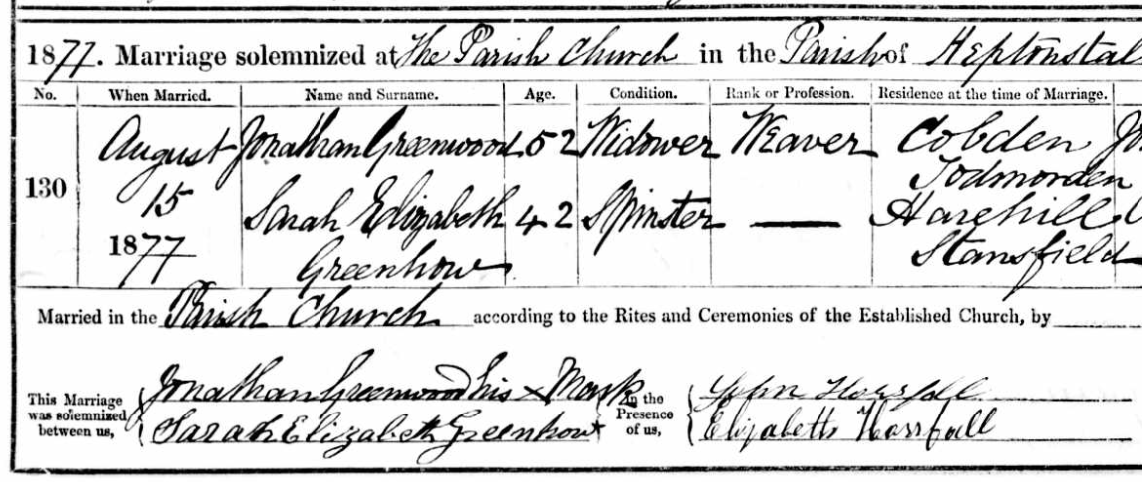 1877. Marriage solemnized at The Parish Church in the Parish of Heptonstal
No. When Married. Name and Surname. Age. Condition. Rank or Profession. Residence at the time of Marriage.
130 August 15 1877 Jonathan Greenwood 52 Widower Weaver Cobden Todmorden
Sarah Elizabeth Greenhow 42 Spinster — Harehill Stansfield
Married in the Parish Church according to the Rites and Ceremonies of the Established Church, by
This Marriage was solemnized between us, Jonathan Greenwood his x Mark
Sarah Elizabeth Greenhow
In the Presence of us, John Horsfall
Elizabeth Horsfall